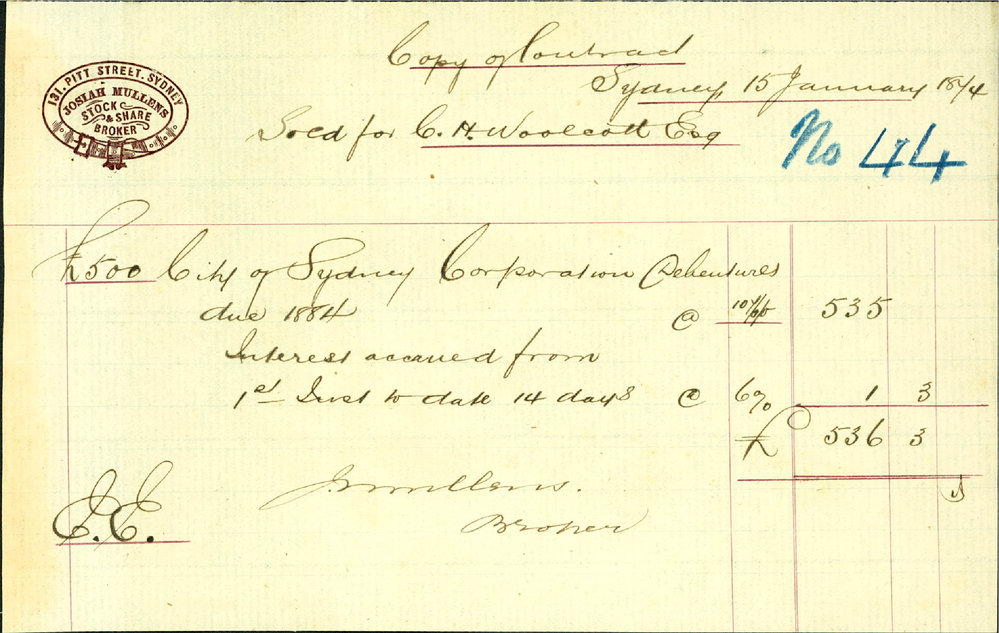 Copy of Contract
Sydney, 15 January 1874
131. PITT STREET. SYDNEY
JOSIAH MULLENS
STOCK
& SHARE
BROKER
Sold for C. H. Woolcott Esq
No 44
£500 City of Sydney Corporation Debentures
due 1884 @ 535
Interest accrued from
1st Inst to date 14 days @ 6% 1 3
£ 536 3
J Mullens.
E.E. Broker